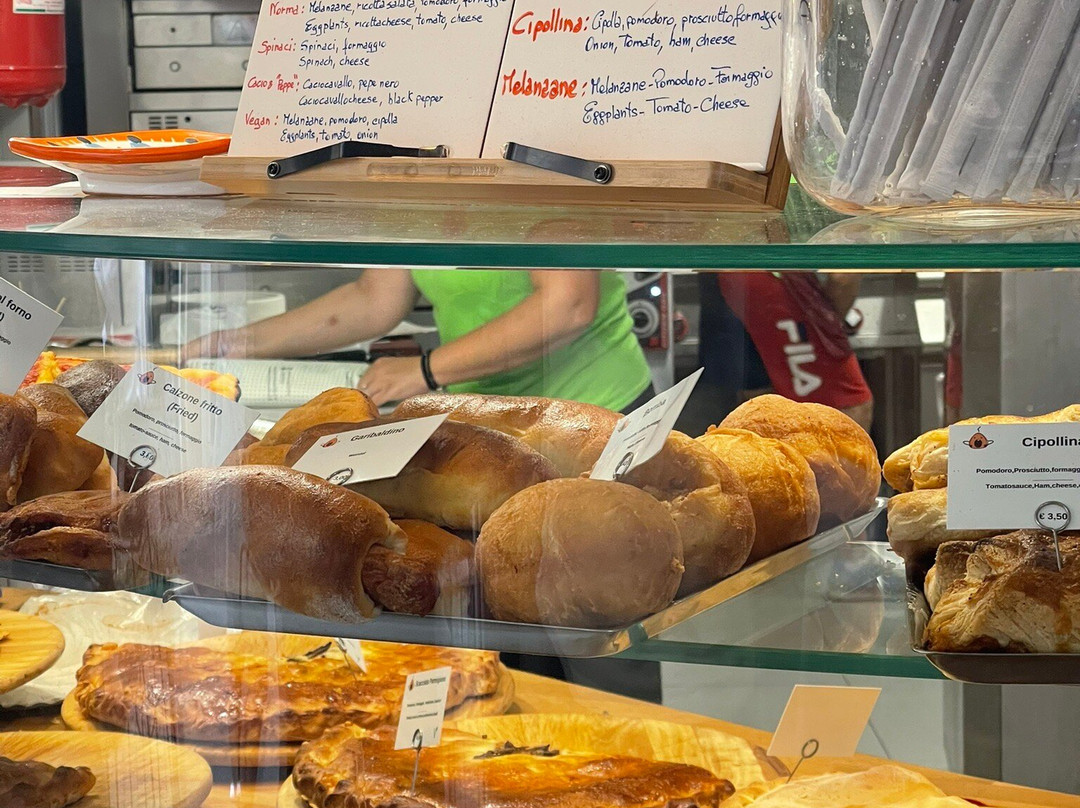 Norma: Melanzane, ricotta salata, pomodoro, formaggio
Eggplants, ricottacheese, tomato, cheese
Spinaci: Spinaci, formaggio
Spinach, cheese
Cacio & "Peppe": Caciocavallo, pepe nero
Caciocavallocheese, black pepper
Vegan: Melanzane, pomodoro, cipolla
Eggplants, tomato, onion
Cipollina: Cipolla, pomodoro, prosciutto, formaggio
Onion, Tomato, ham, cheese
Melanzane: Melanzane-Pomodoro-Formaggio
Eggplants-Tomato-Cheese
al forno
FILA
Calzone fritto
(Fried)
Pomodoro, prosciutto, formaggio
tomato-sauce, ham, cheese
Garibaldino
Bomba
Cipollina
Pomodoro,Prosciutto,formaggio
Tomatosauce,Ham,cheese,
€ 3,50